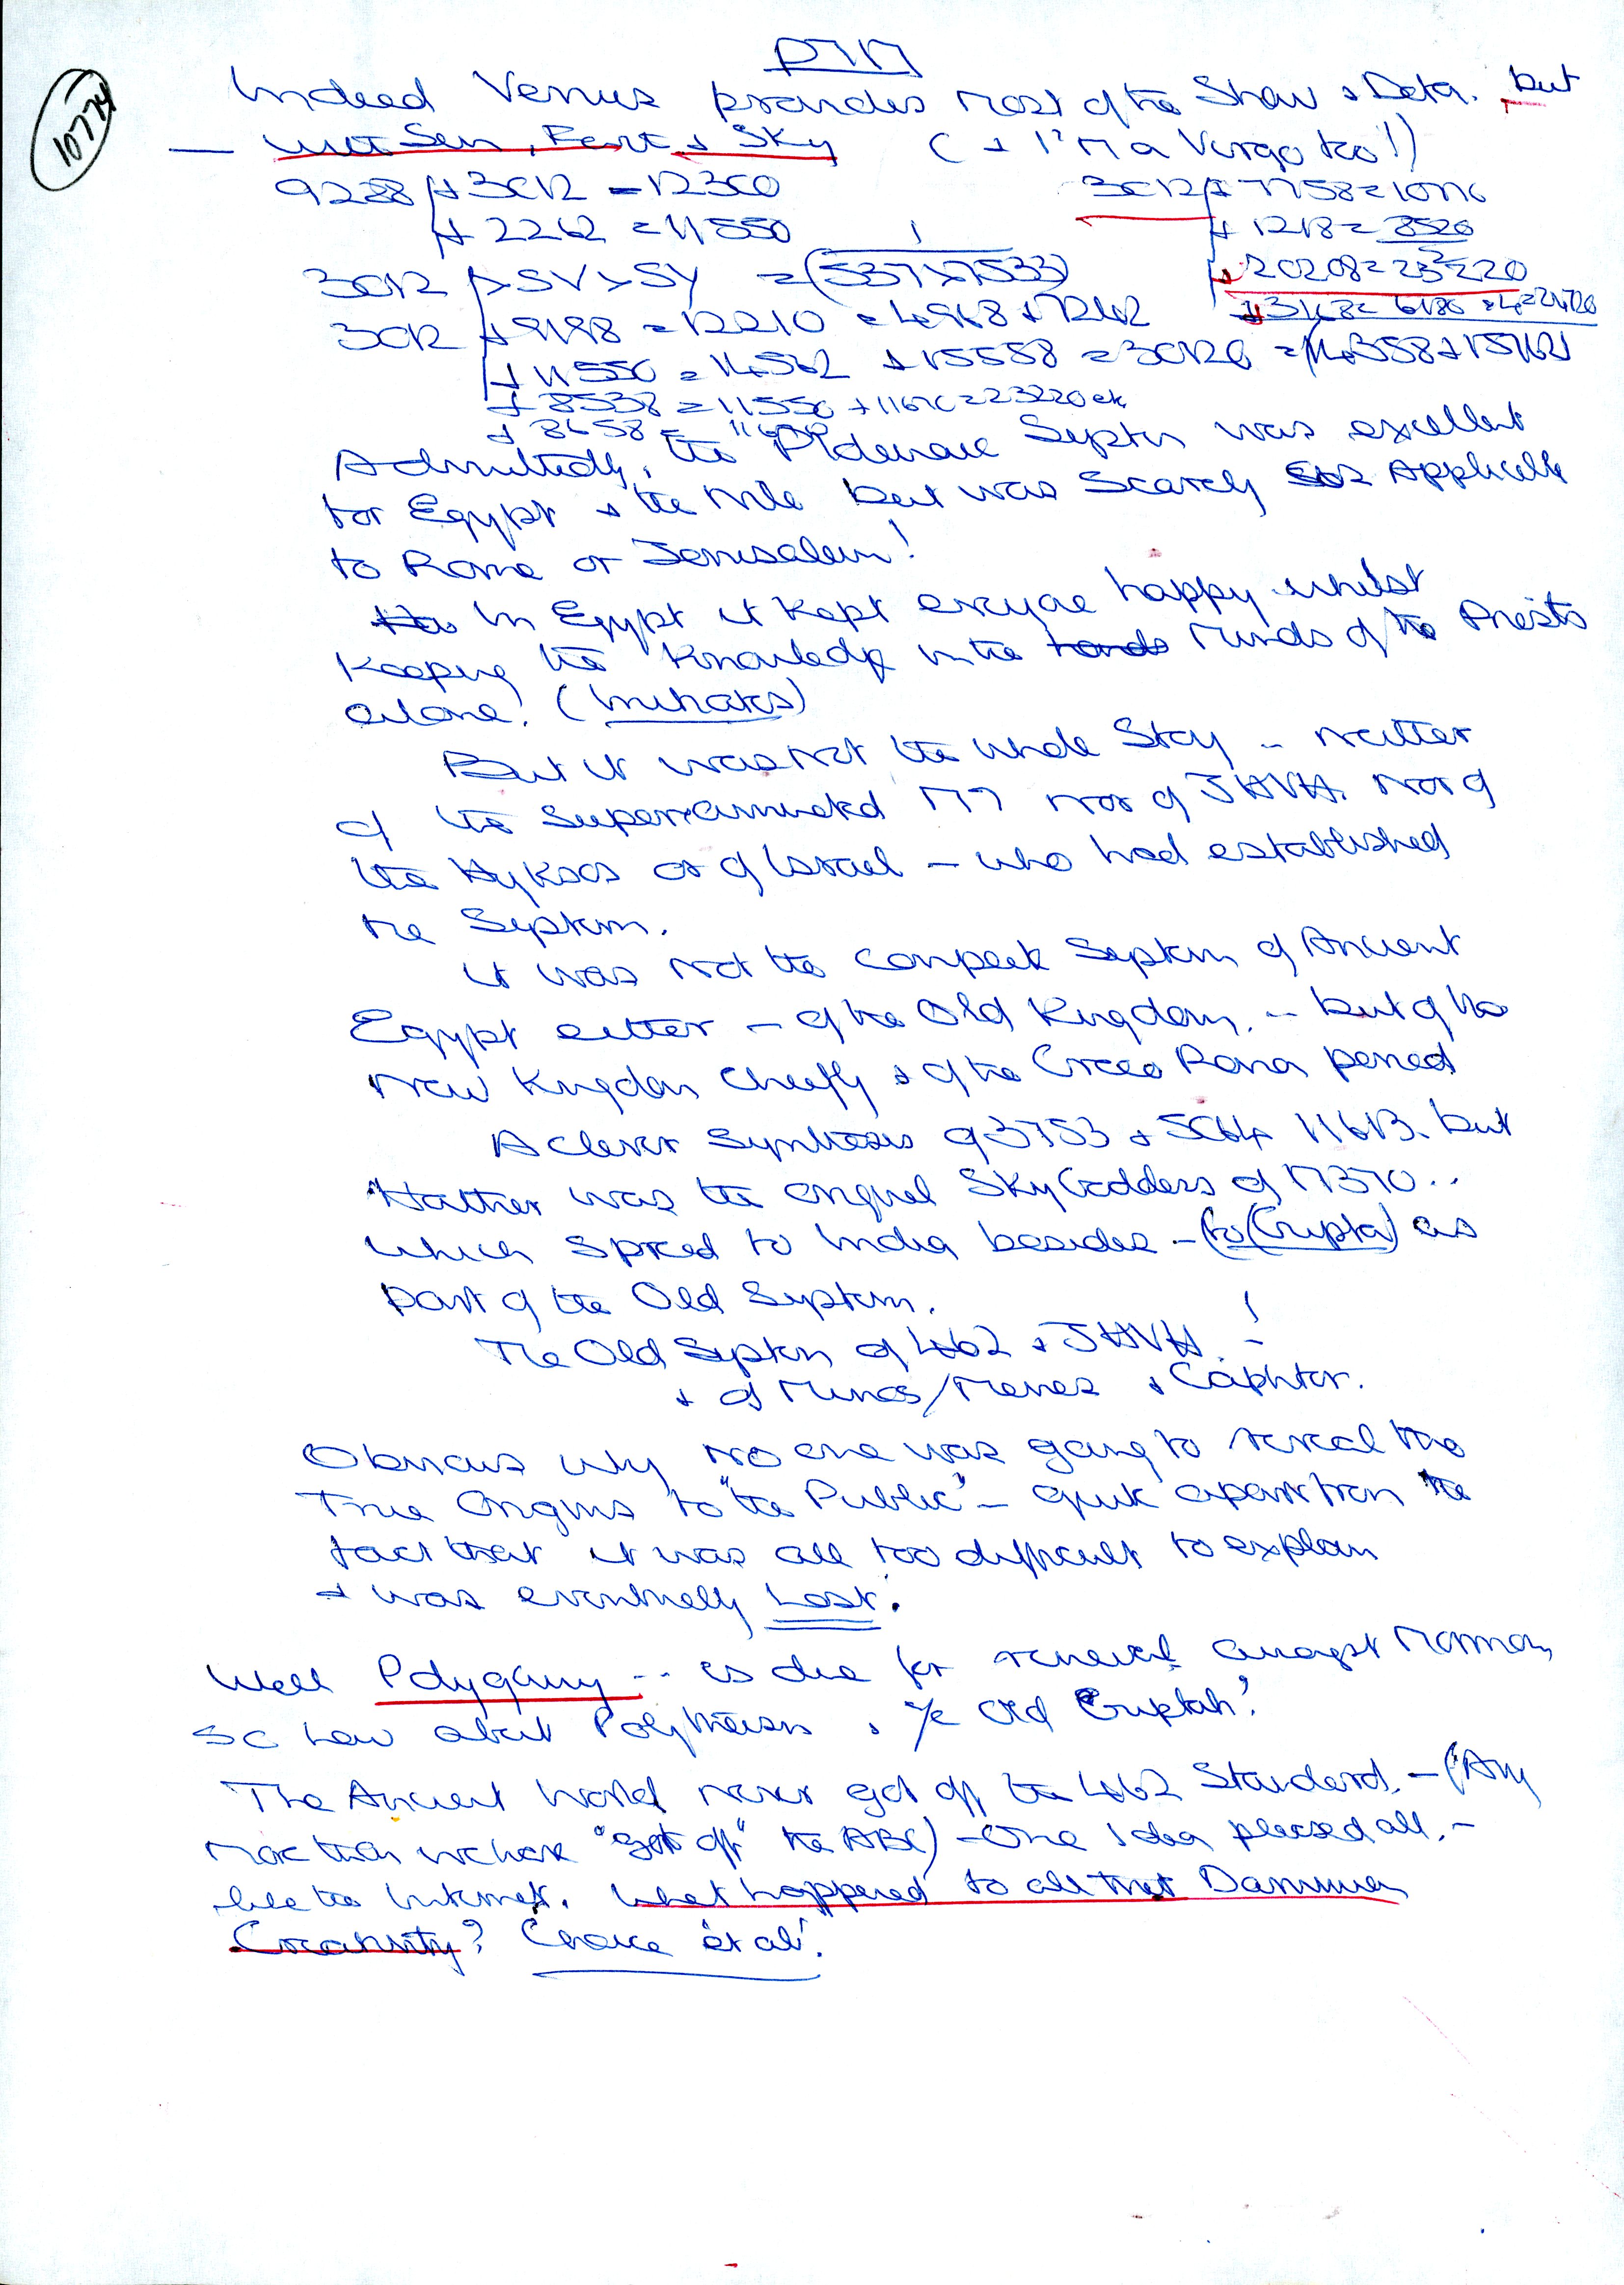 10774
Indeed Venus provides most of the Show & Data. but
— with Sun, & Sky (+ I'm a Virgo too!)
9288 + 3012 = 12300
+ 2262 = 11550
3012 + 7758 = 10770
+ 20208 = 23220
3012 > SV > SY = (537 × 7533)
3012 + 9198 = 12210 = 4968 + 7242
+ 3168 = 6180 × 4 = 24720
+ 11550 = 14562 + 15558 = 30120 =
+ 8538 = 11550 + 11670 = 23220 ek
+ 8658 = 11670
Admittedly, the System was excellent
for Egypt & the Nile but was Scarcely Applicable
to Rome or Jerusalem!
In Egypt it kept everyone happy whilst
keeping the Knowledge in the hands Minds of the Priests
alone!
But it was not the whole Story – neither
of the Superannuated nor of JHVH. nor of
the Hyksos or of Israel – who had established
the System.
it was not the complete System of Ancient
Egypt either – of the Old Kingdom. – but of the
New Kingdom chiefly & of the Greco Roman period
A clever Synthesis of 3753 + 5064 11613. but
Hathor was the original Sky Goddess of 17370..
which spread to India besides – (to (Gupta) as
part of the Old System.
The Old System of 462 & JHVH!
& of Minos/Menes & Caphtor.
Obvious why no one was going to reveal the
True Origins to "the Public" – quite apart from the
fact that it was all too difficult to explain
& was eventually Lost.
Well Polygamy .. is due for renewal amongst Mormons
so how about Polytheism, Ye Old
The Ancient World never got off the 462 Standard. – (Any
more than we have "got off" the ABC) – One Idea pleased all. –
like the Internet. What happened to all that
? et al'.